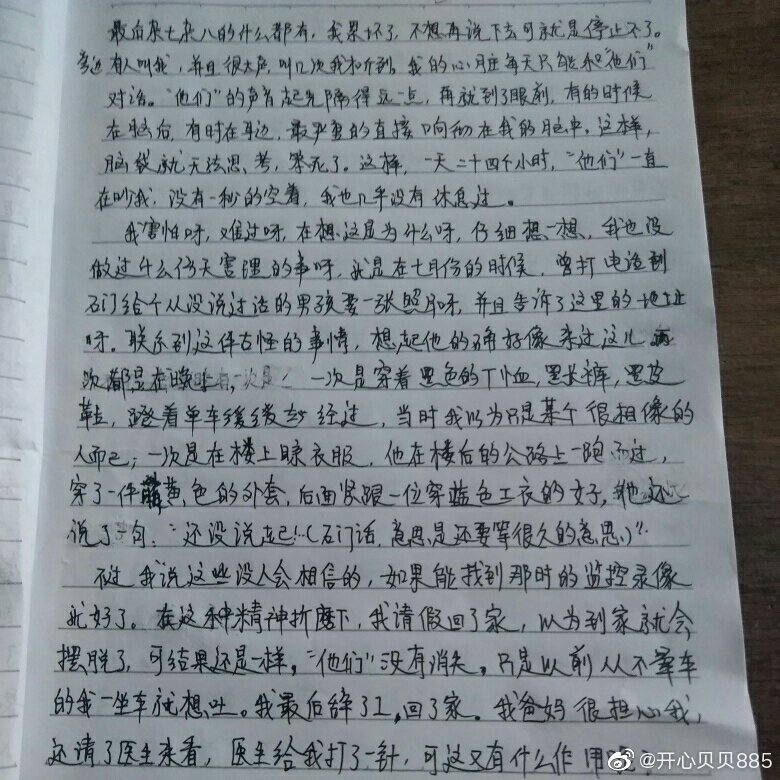 最后杂七杂八的什么都有，我累坏了，不想再说下去可就是停止不了。
旁边有人叫我，并且很大声，叫几次我才听到，我的心脏每天只能和“他们”
对话。“他们”的声音起先隔得远一点，再就到了眼前，有的时候
在脑后，有时在耳边，最严重的直接响彻在我的脑中。这样，
脑袋就无法思考，笨死了。这样，一天二十四个小时，“他们”一直
在吵我，没有一秒的空着，我也几乎没有休息过。
我害怕呀，难过呀，在想这是为什么呀，仔细想一想，我也没
做过什么伤天害理的事呀，就是在七月份的时候，曾打电话到
石门给个从没说过话的男孩要一张照片呀，并且告诉了这里的地址
呀。联系到这件古怪的事情，想起他的确好像来过这儿两
次都是在晚上，一次是穿着黑色的T恤，黑长裤，黑皮
鞋，蹬着单车缓缓地经过，当时我以为只是某个很相像的
人而已；一次是在楼上晾衣服，他在楼后的公路上一跑而过，
穿了一件黄色的外套，后面紧跟一位穿蓝色工衣的女子，她还
说了一句：“还没说起！（石门话，意思是还要等很久的意思）”
不过我说这些没人会相信的，如果能找到那时的监控录像
就好了。在这种精神折磨下，我请假回了家，以为到家就会
摆脱了，可结果还是一样，“他们”没有消失。只是以前从不晕车
的我一坐车就想吐。我最后辞了工，回了家。我爸妈很担心我，
还请了医生来看，医生给我打了一针，可这又有什么作用
@开心贝贝885